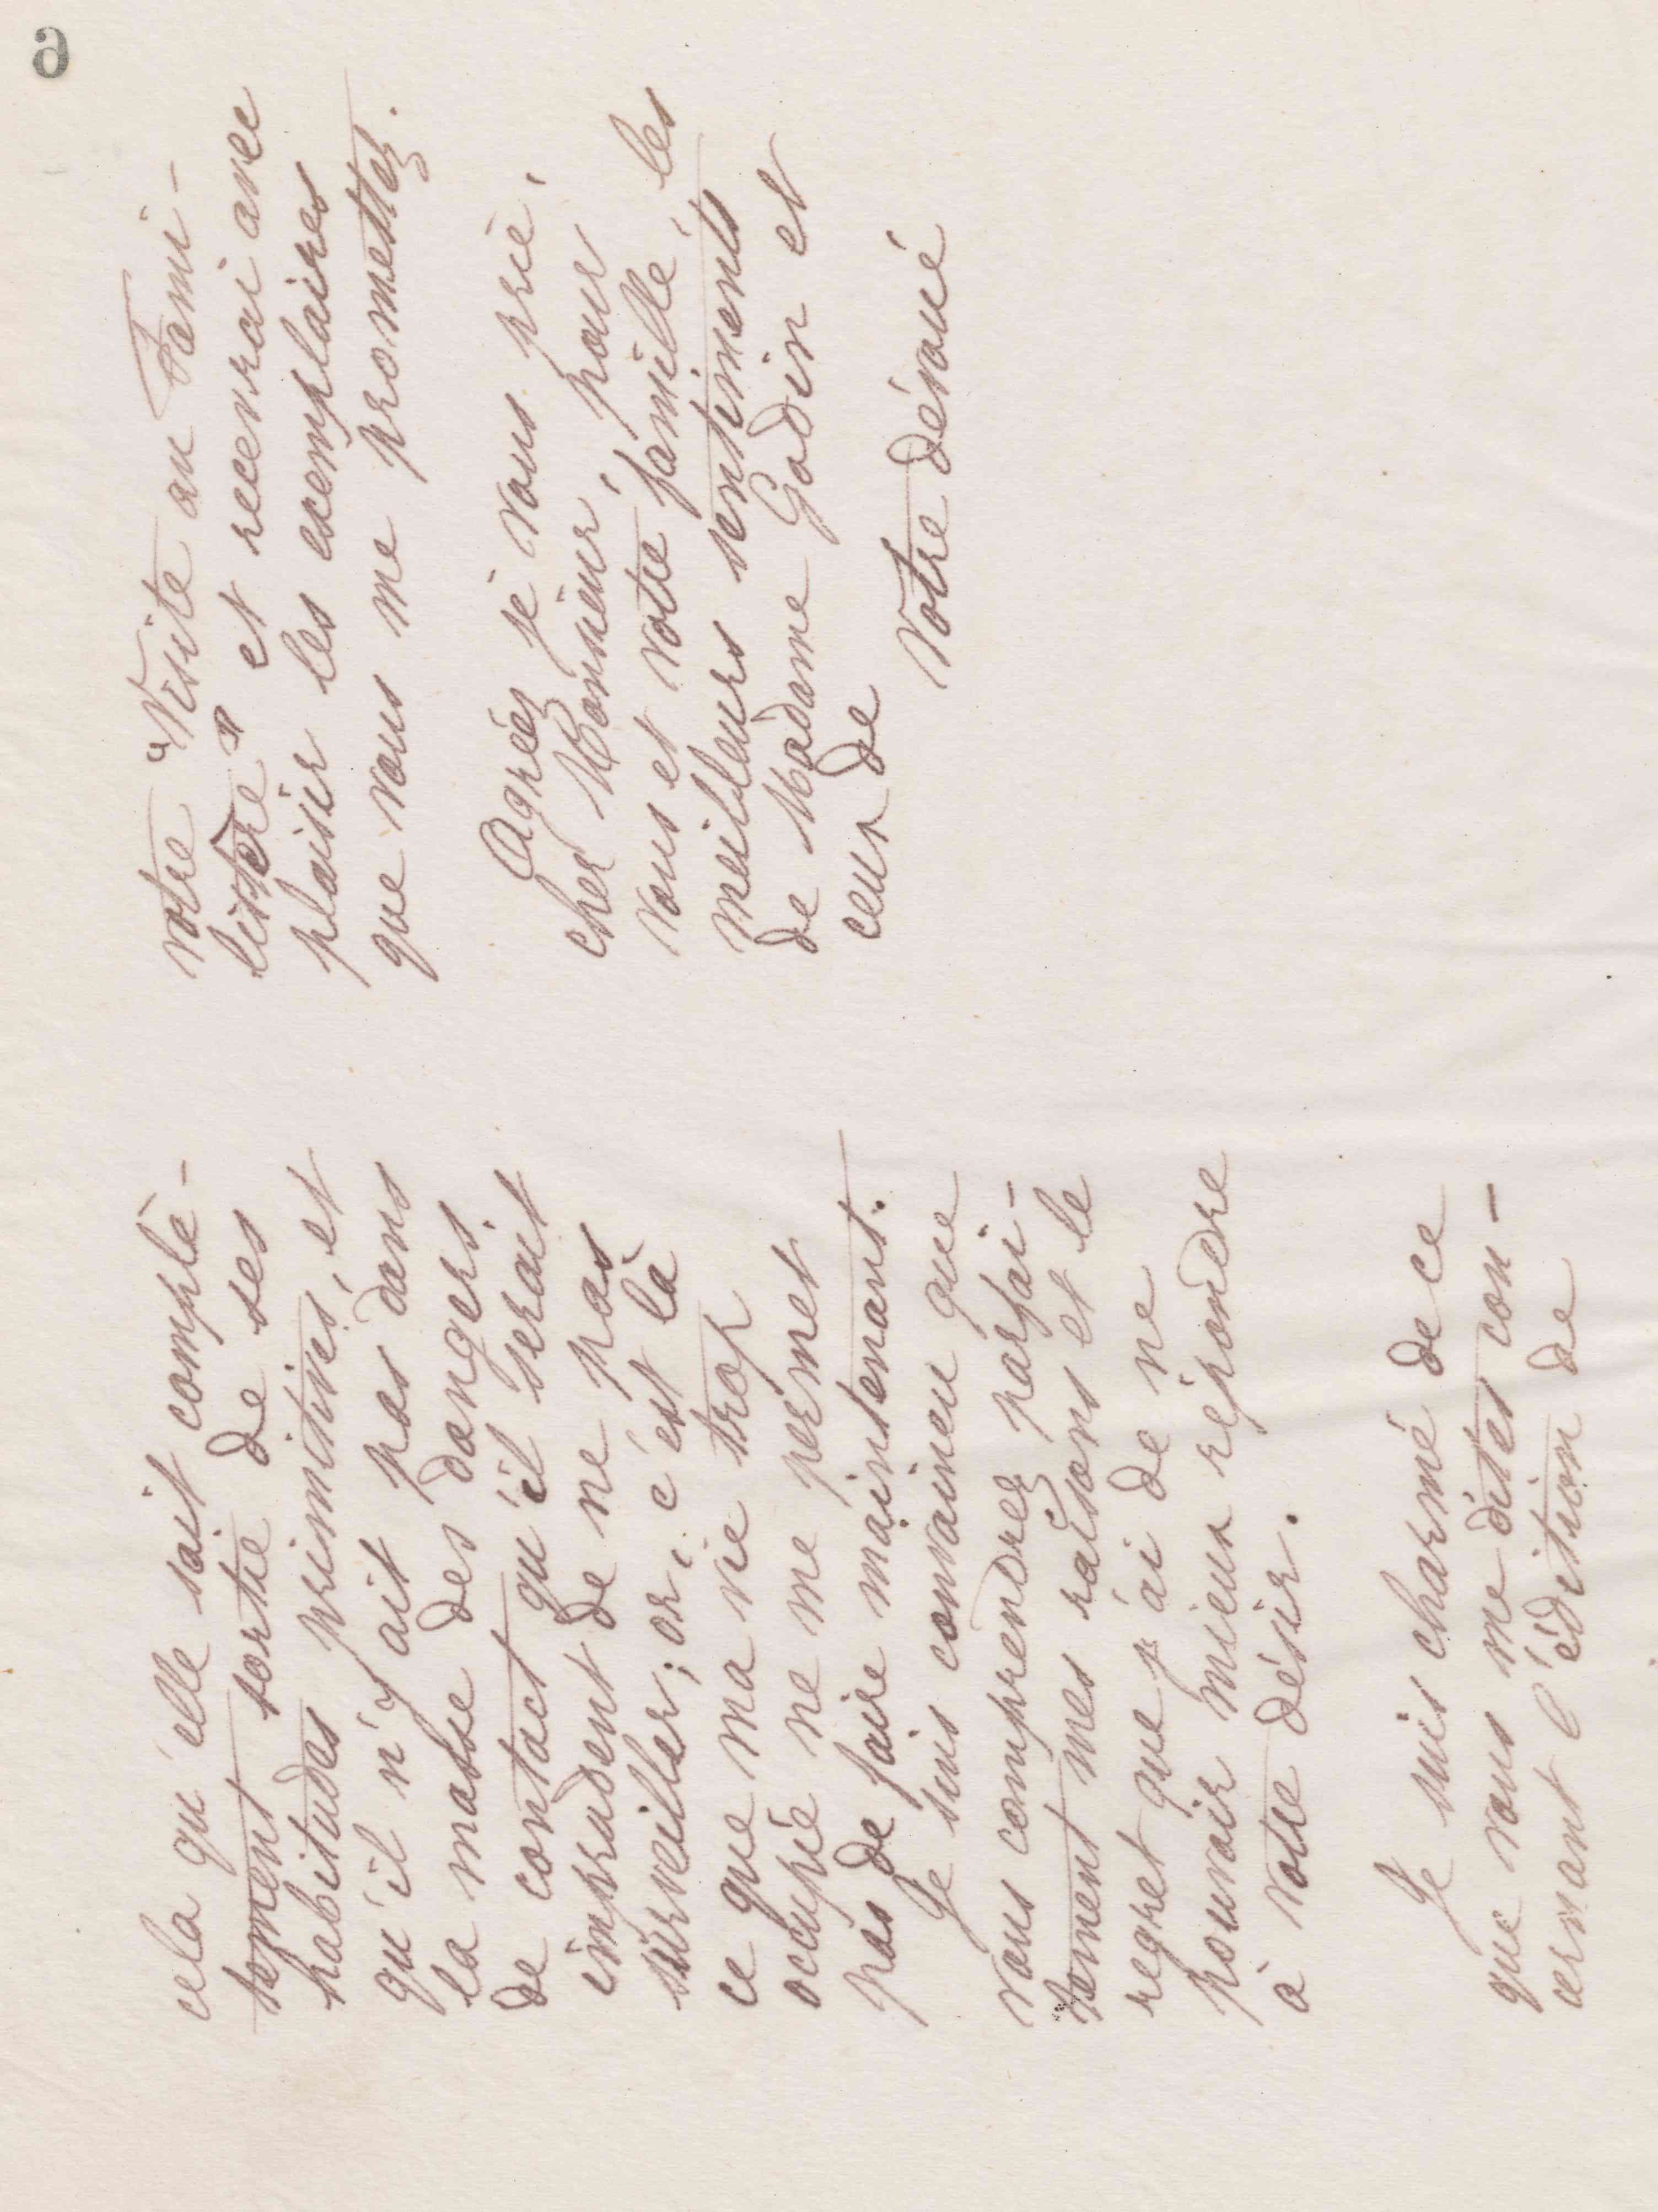 cela qu'elle soit complè-
tement sortie de ses
habitudes primitives, et
qu'il n'y ait pas dans
la masse des dangers
de contact qu'il serait
imprudent de ne pas
surveiller; or, c'est là
ce que ma vie trop
occupée ne me permet
pas de faire maintenant.
Je suis convaincu que
vous comprendrez parfai-
tement mes raisons et le
regret que j'ai de ne
pouvoir mieux répondre
à votre désir.
Je suis charmé de ce
que vous me dites con-
cernant l'édition de
votre "Visite au Fami-
listère" et recevrai avec
plaisir les exemplaires
que vous me promettez.
Agréez je vous prie,
cher Monsieur, pour
vous et votre famille, les
meilleurs sentiments
de Madame Godin et
ceux de
Votre dévoué